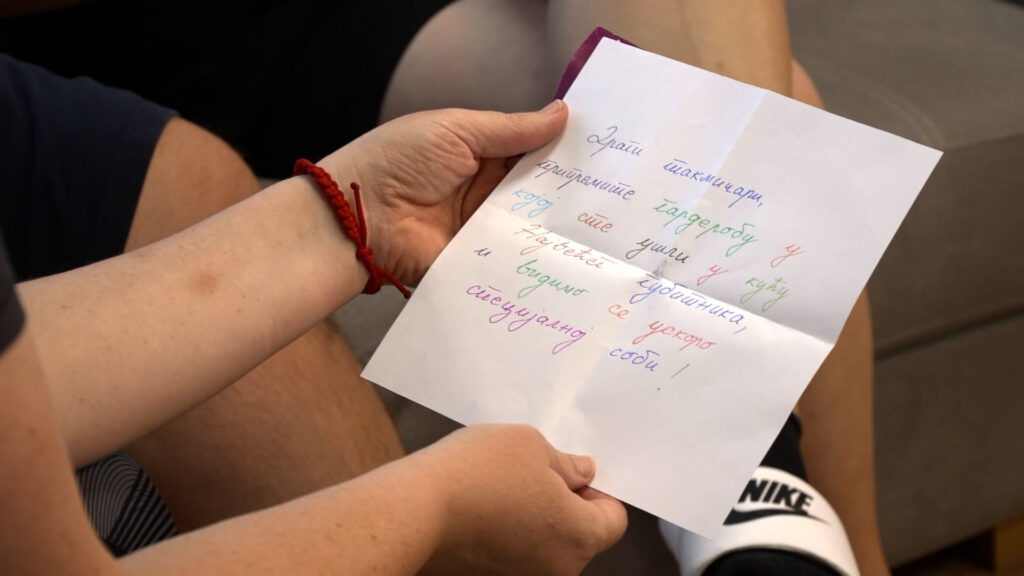 Драги такмичари,
припремите гардеробу у
којој сте ушли у кућу
Највећег губитника,
и видимо се ускоро
специјалној соби!
NIKE